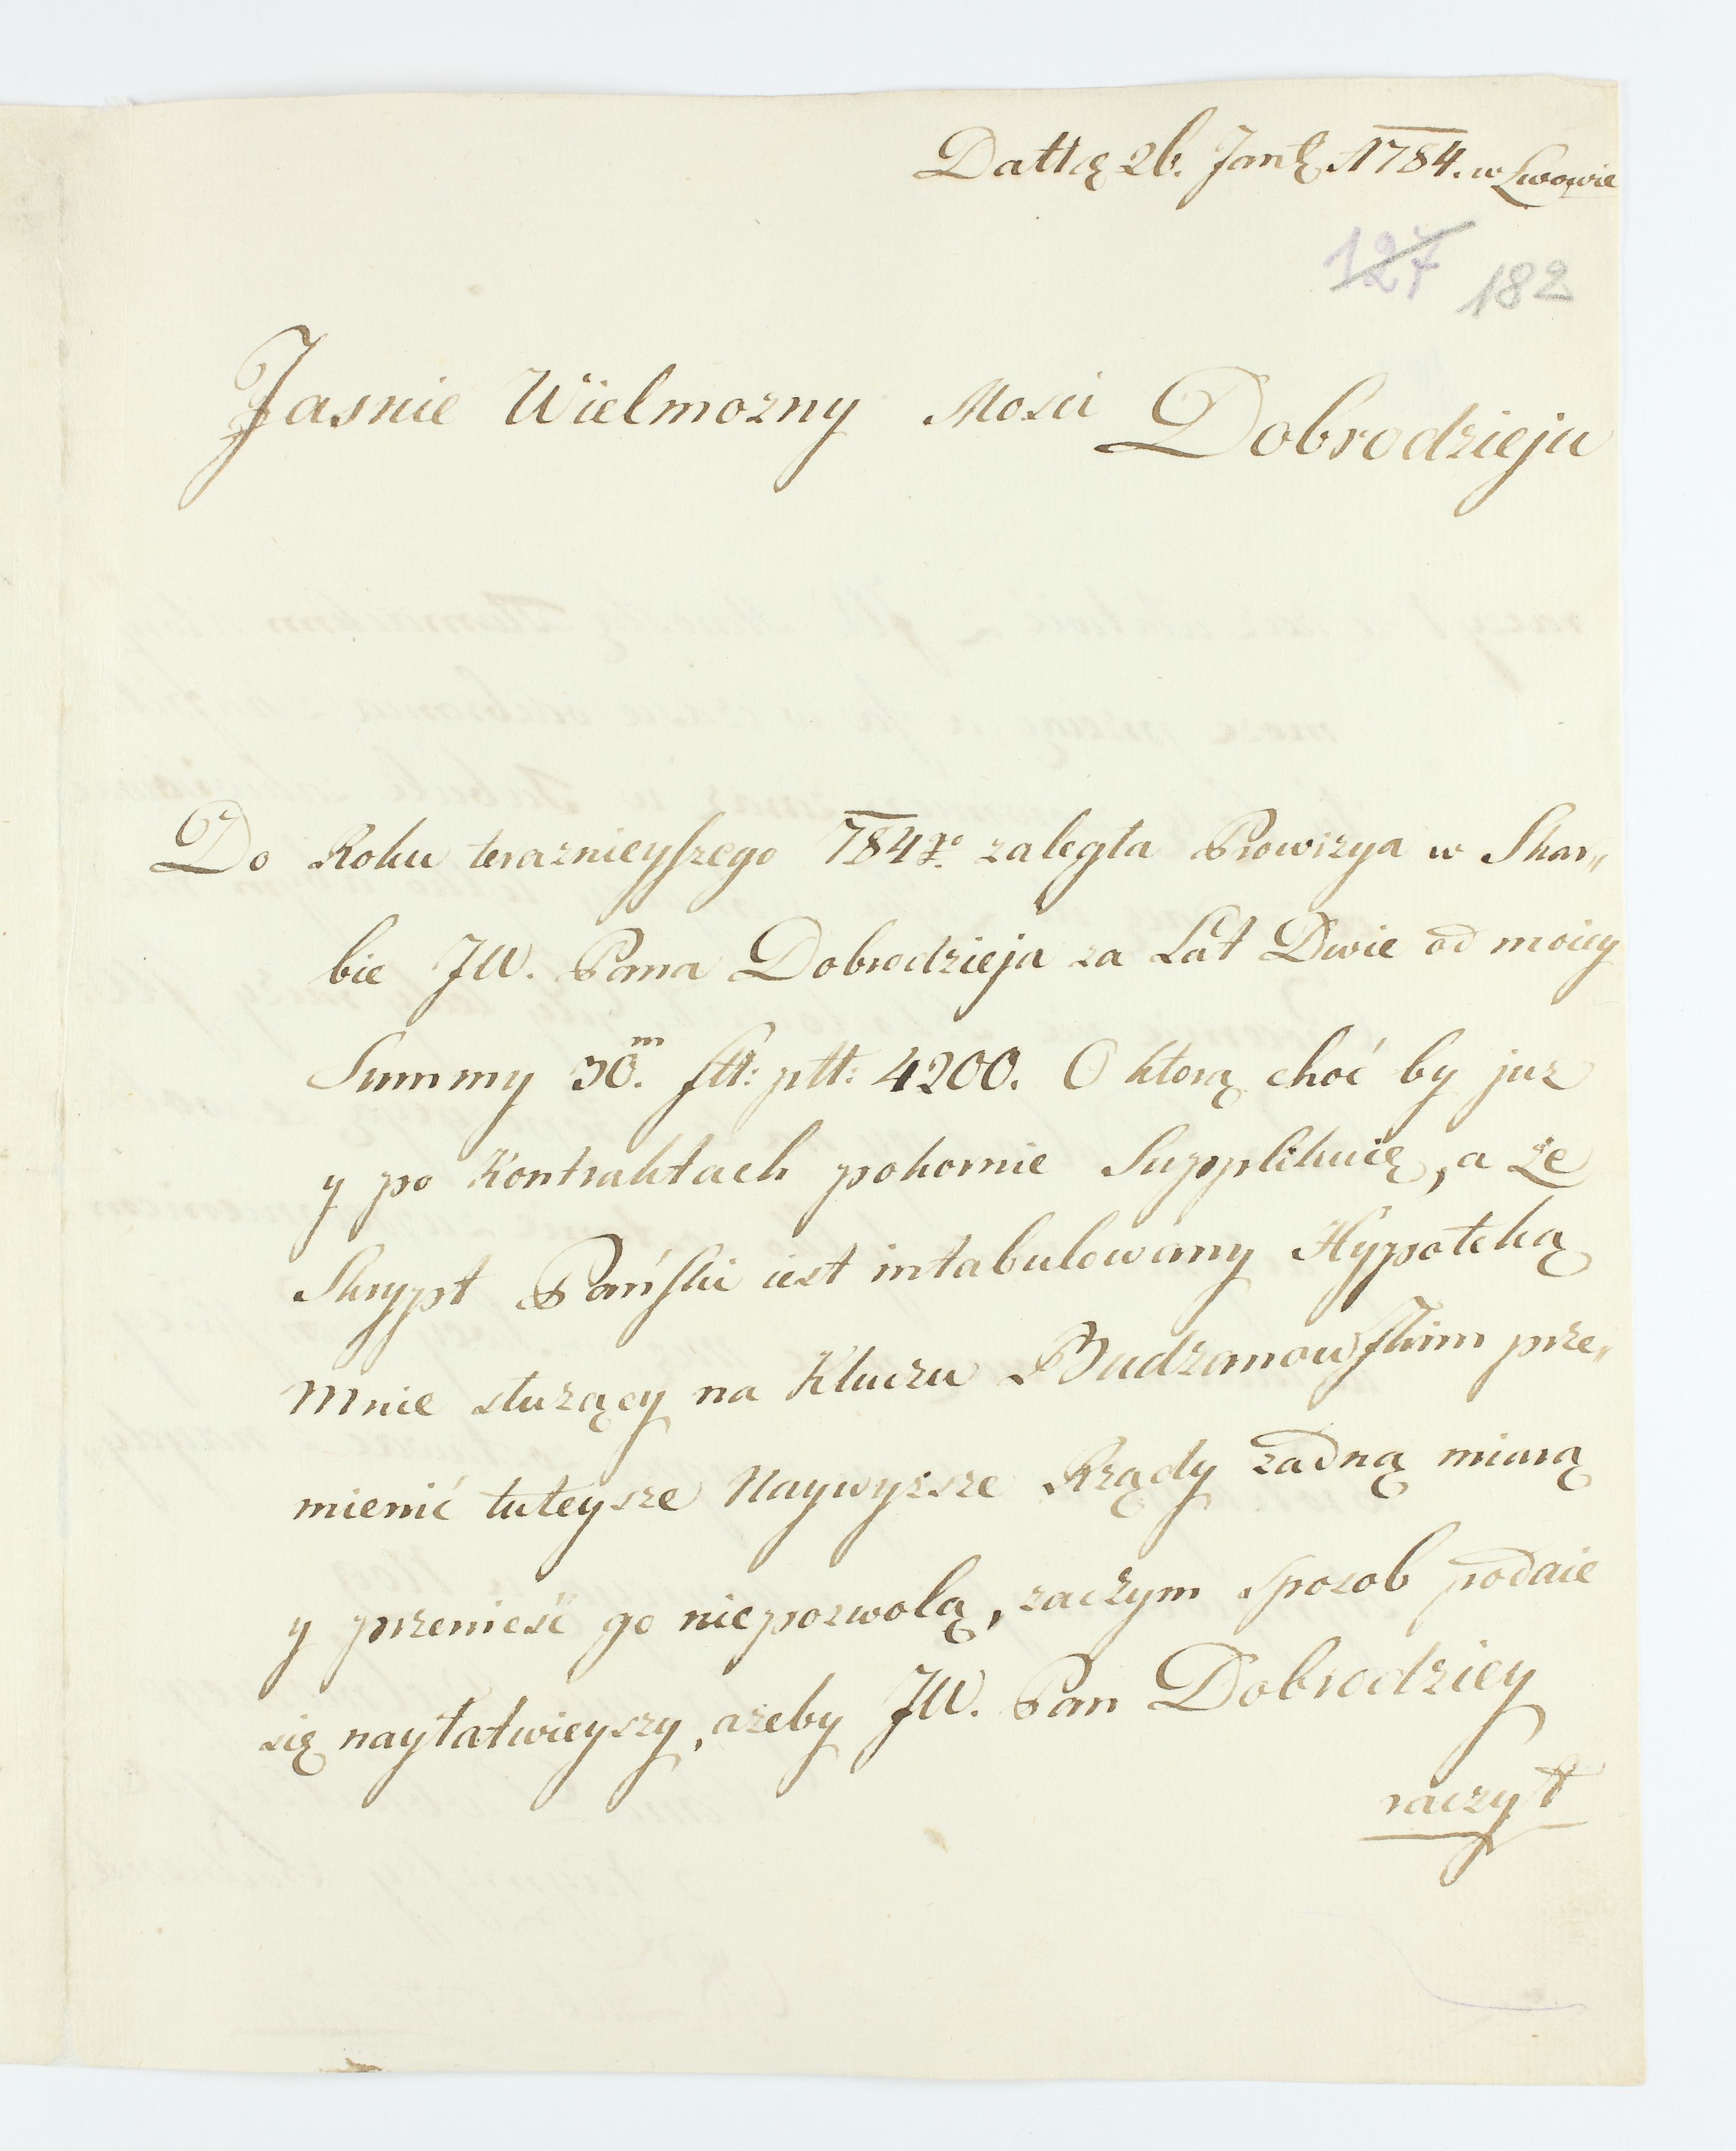 Dattą 26. Jan̄ę 1784. w Lwowie
127 182
Jasnie Wielmozny Mosci Dobrodzieju
Do Roku teraznieyszego 784go zaległa Prowizya w Skar„
bie JW. Pana Dobrodzieja za Lat Dwie od moiey
Summy 30.m flł: płł: 4200. O ktorą choć by juz
y po Kontraktach pokornie Supplikuię, a że
Skrypt Pański iest intabulowany Hypoteką
Mnie słuzący na Kluczu Budzanowskim prze„
mienić tuteysze Naywyzsze Rządy zadną miarą
y przenieść go niepozwolą, zaczym sposob podaie
się nayłatwieyszy, azeby JW. Pan Dobrodziey
raczył